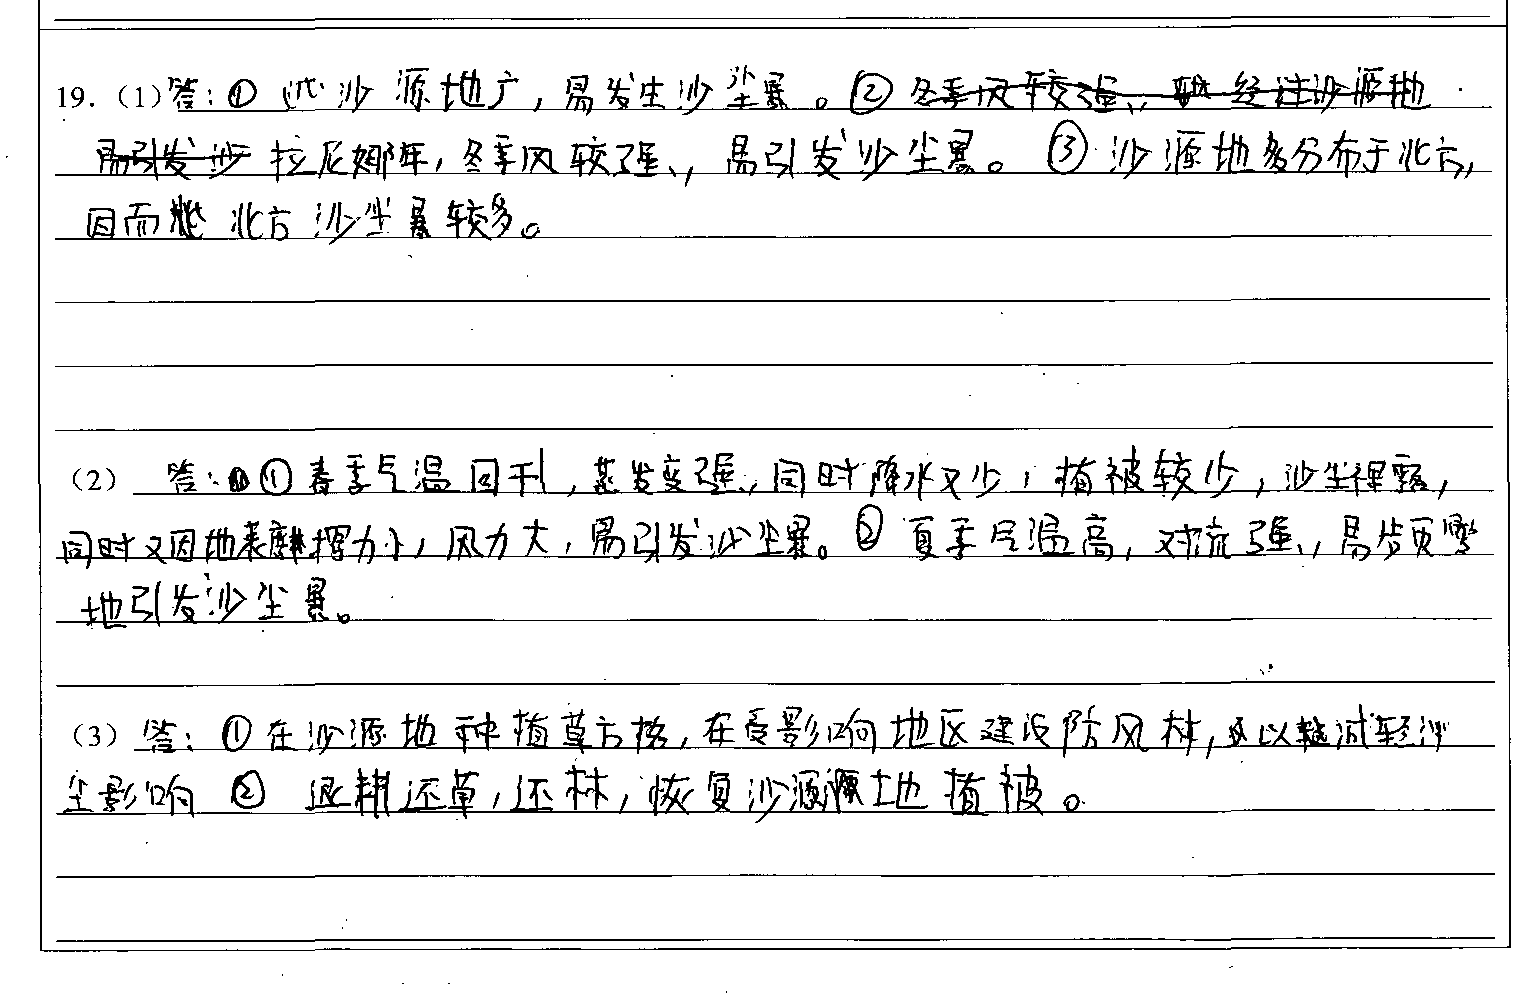 19.（1）答：① 沙源地广，易发生沙尘暴。② 冬季风较强，经过沙源地
易引发沙 拉尼娜年，冬季风较强，易引发沙尘暴。③ 沙源地多分布于北方，
因而 北方沙尘暴较多。
（2）答：① 春季气温回升，蒸发变强，同时降水又少，植被较少，沙尘裸露，
同时又因地表摩擦力小，风力大，易引发沙尘暴。② 夏季气温高，对流强，易频繁
地引发沙尘暴。
（3）答：① 在沙源地种植草方格，在受影响地区建设防风林，以减轻沙
尘影响 ② 退耕还草，还林，恢复沙源地植被。